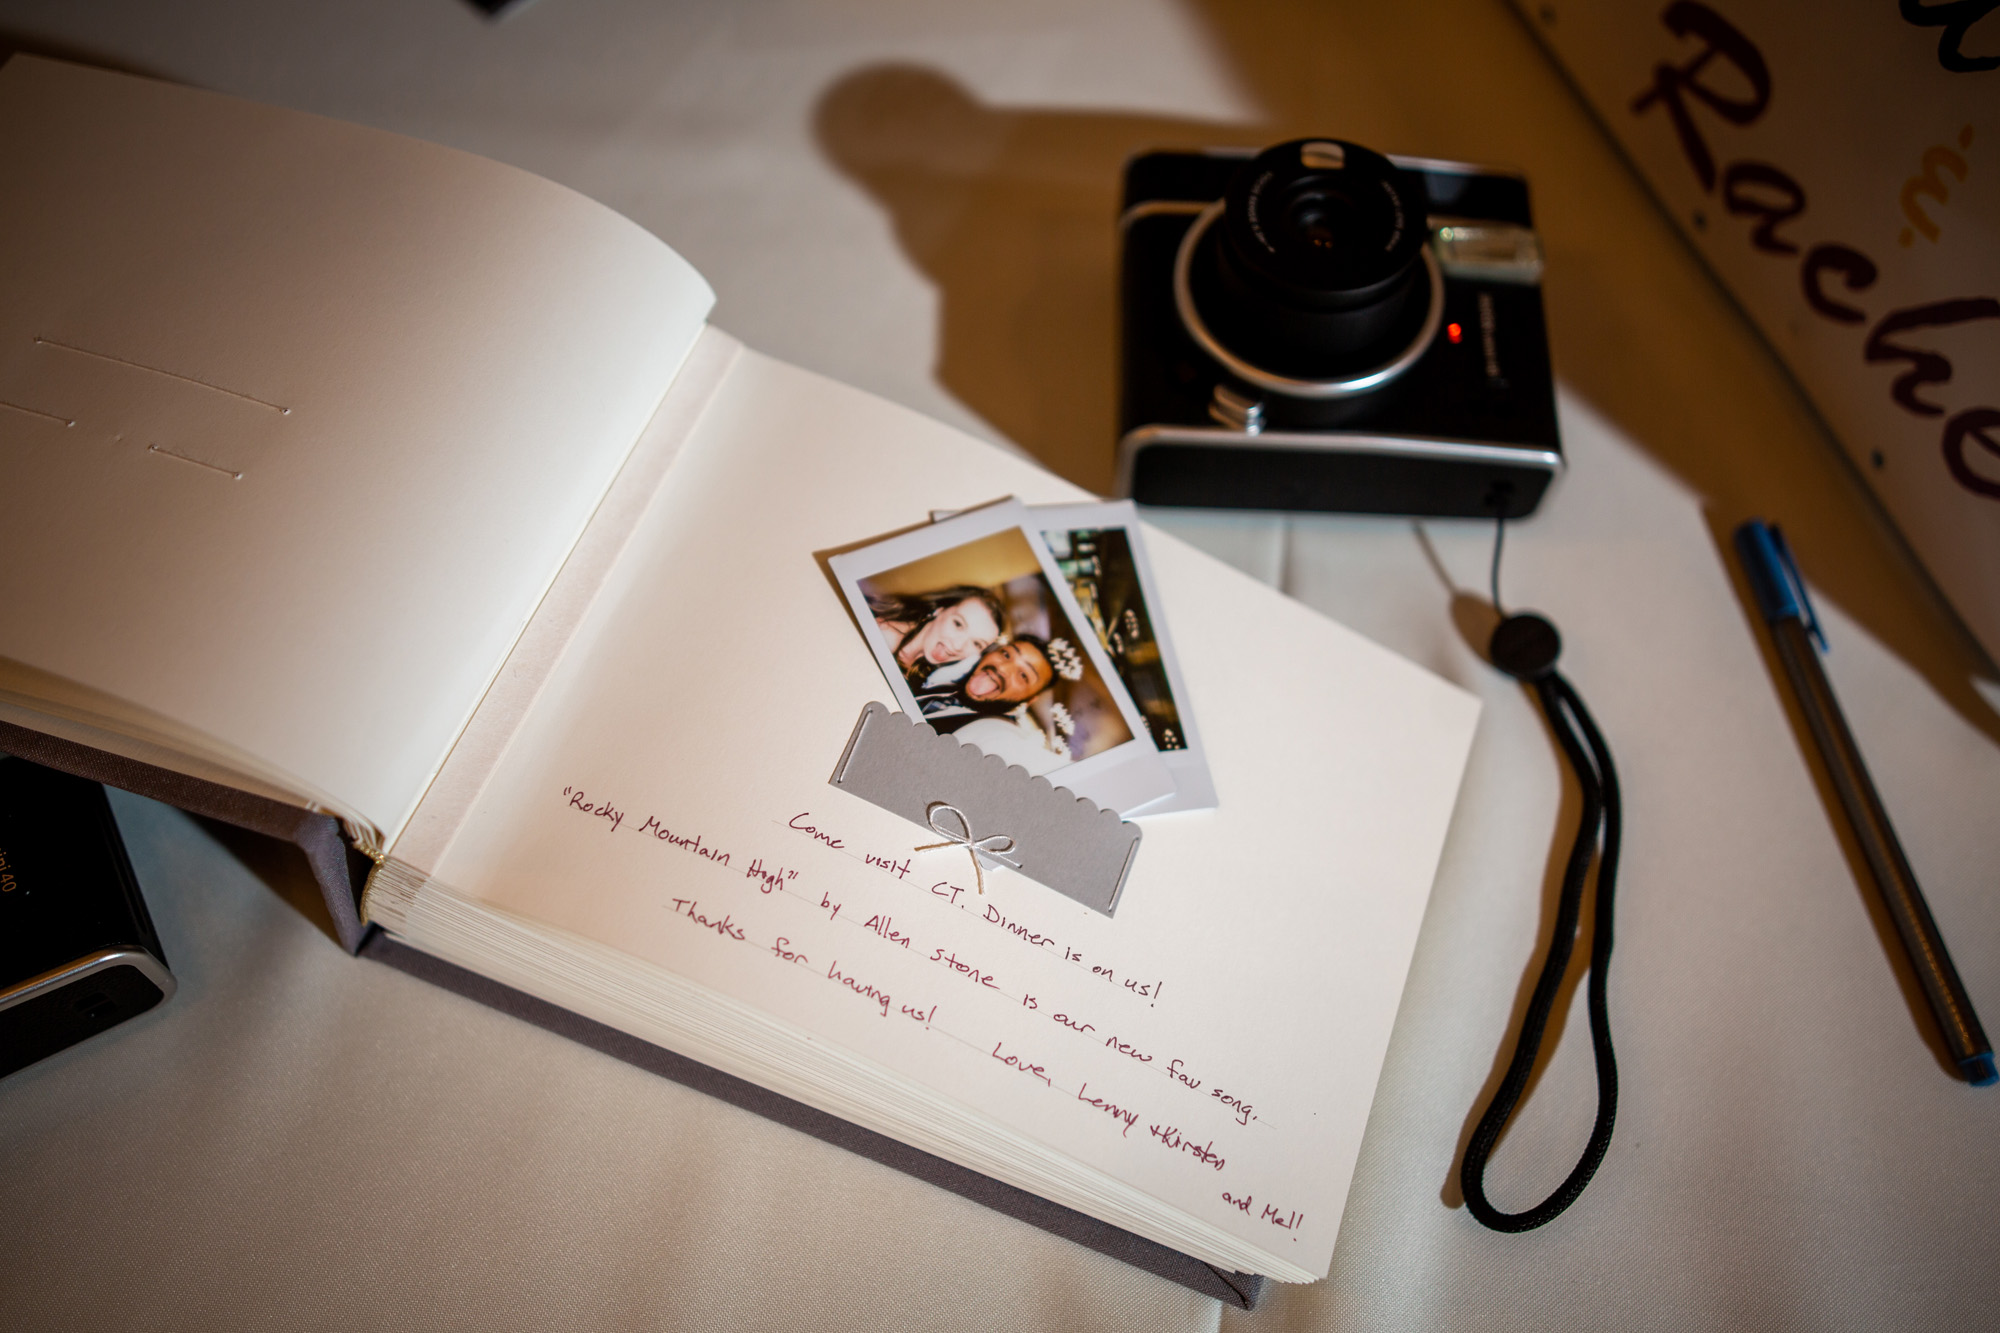 Come visit CT. Dinner is on us!
"Rocky Mountain High" by Allen Stone is our new fav song.
Thanks for having us! Love, Lenny + Kirsten
and Mel!
Rache
ini 40